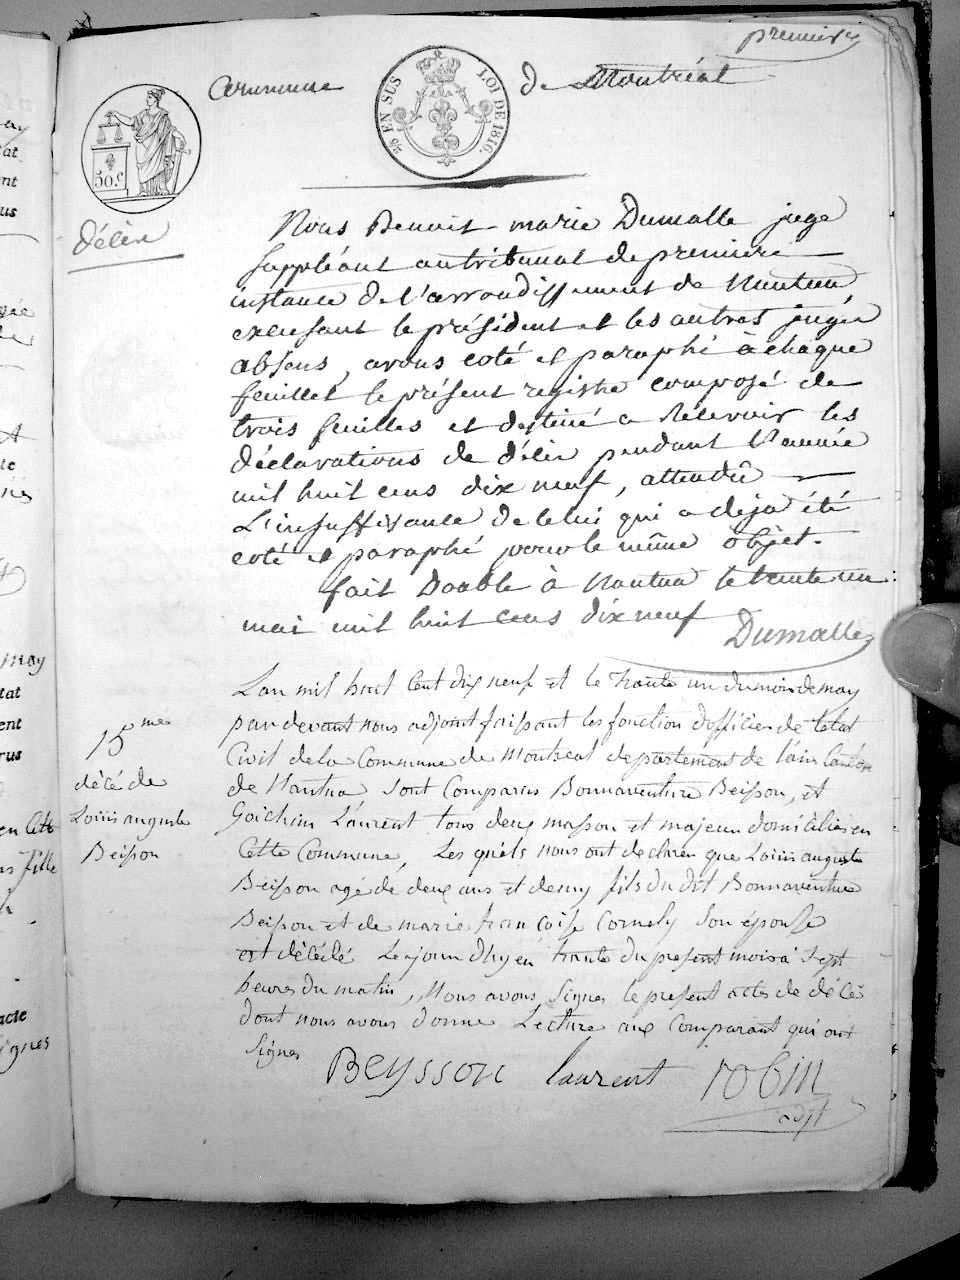 premier
Commune de Montréal
25 EN SUS LOI DE 1816.
50.c
décès
Nous Benoit-marie Dumalle juge
suppléant au tribunal de premiere
instance de l'arrondissement de Nantua
excusant le président et les autres juges
absens, avons coté et paraphé à chaque
feuillet le présent registre composé de
trois feuilles et destiné a recevoir les
déclarations de décès pendant l'année
mil huit cens dix neuf, attendu
L'insuffisance de celui qui a déja été
coté et paraphé pour le même objet.
fait Double à Nantua le trente un
mai mil huit cens dix neuf
Dumalle
15me
décé de
Louis auguste
Beisson
L'an mil huit Cent dix neuf et le trante un du mois de may
par devant nous adjoint faissant les fonction d'officier de l'état
Civil de la Commune de Montreal departement de l'ain Canton
de Nantua Sont Comparus Bonnaventure Beisson, et
Goichim Laurent tous deux masson et majeur domiciliés en
Cette Commune, Les quels nous ont declaren que Louis auguste
Beisson agé de deux ans et demy fils du dit Bonnaventure
Beisson et de marie francoise Cornely Son épouse
est décédé Le jour d'hyen trante du present mois à Sept
heures du matin, Nous avons Signes le present acte de décé
dont nous avons donne Lecture aux Comparant qui ont
Signes
BEYSSON laurent robin
adjt
may
tat
ent
rus
en Cette
fille
acte
ignes